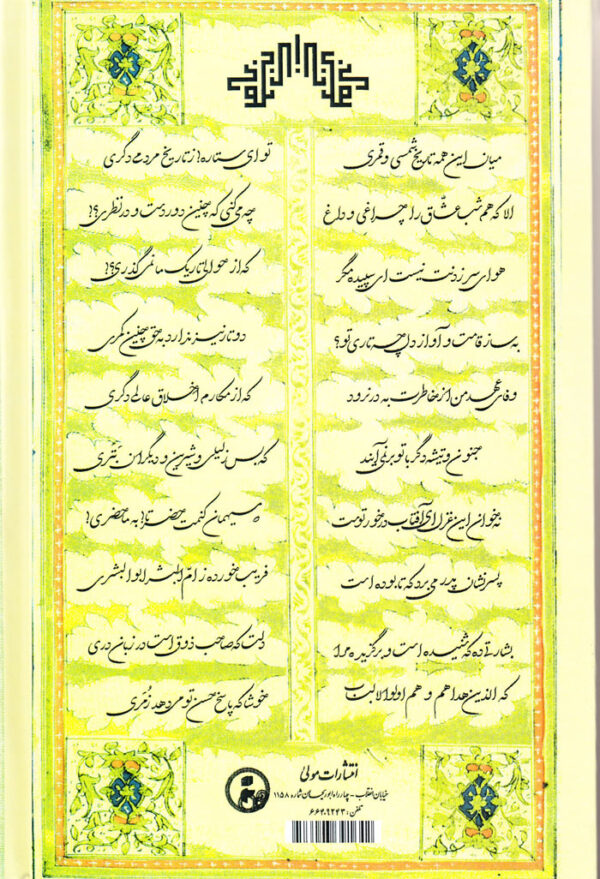 میان این همه تاریخ شمسی و قمری
تو ای ستاره! ز تاریخ مردم دگری
الا که هم شب عشّاق را چراغی و داغ
چه می‌کنی که چنین دوردست و در نظری؟!
هوای سر زدنت نیست ای سپیده مگر
که از حوالی تاریک ما نمی‌گذری؟!
به ساز قامت و آواز دل چه تاری تو؟
دوتار نیز ندارد به حق چنین کمری
وفای عهد من از خاطرت به در نرود
که از مکارم اخلاق عالمی دگری
جنون و تیشه دگر با تو برنمی‌آیند
که بس ز لیلی و شیرین و دیگران بَتَری
به خوان این غزل ای آفتاب در خور توست
چه میهمان کنمت حضرتا! به ماحضری؟
پسر نشان پدر می‌برد که تا بوده است
فریب خورده ز امّ البشر ابوالبشری
بشارتی ده که شنیده است و برگزیده مرا
دلت که صاحب ذوق است در زبان دری
که الذین هداهم و هم اولوالالباب
خوشا که پاسخ حسن تو می‌دهد زُمَری
انتشارات مولی
خیابان انقلاب - چهارراه ابوریحان شماره ۱۱۵۸
تلفن: ۶۶۴۰۹۲۴۳